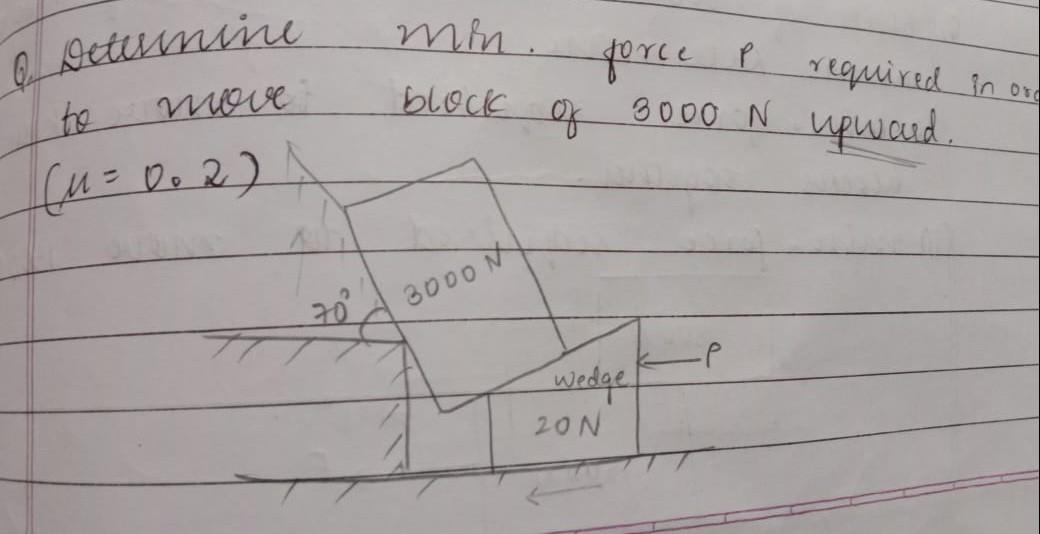 Q. Determine min. force P required in ord
to move block of 3000 N upward.
(μ = 0.2)
3000 N
70°
P
wedge
20 N